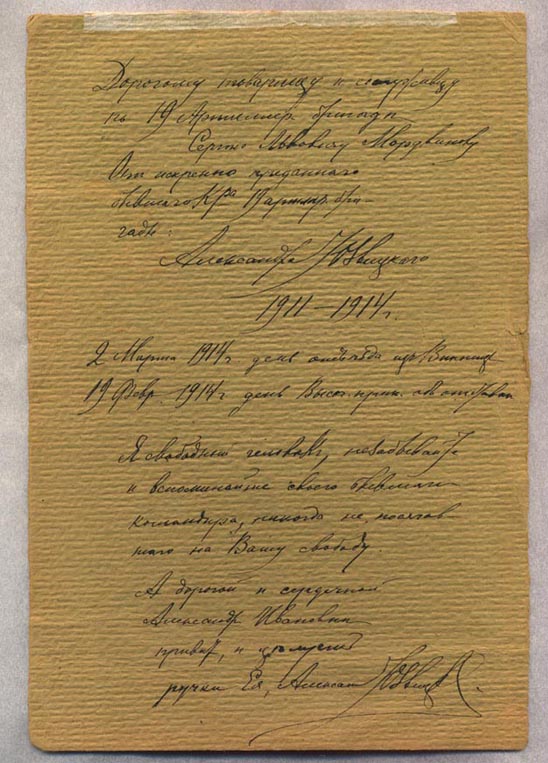 Дорогому товарищу и сослуживцу
по 19 Артиллер. бригаде
Сергею Львовичу Мордвинову
От искренно преданного
бывшего Кра Вартилер. бри-
гады:
Александра
1911–1914 г.
2 Марта 1914 г день отъезда изъ Винницы
19 Февр 1914 г день Высоч. прик. объ отставке
Я свободный человекъ, не забывайте
и вспоминайте своего бывшаго
командира, никогда не посягав-
шаго на Вашу свободу.
А дорогой и сердечной
Александре Ивановне
привет, и целую
ручки Ея,